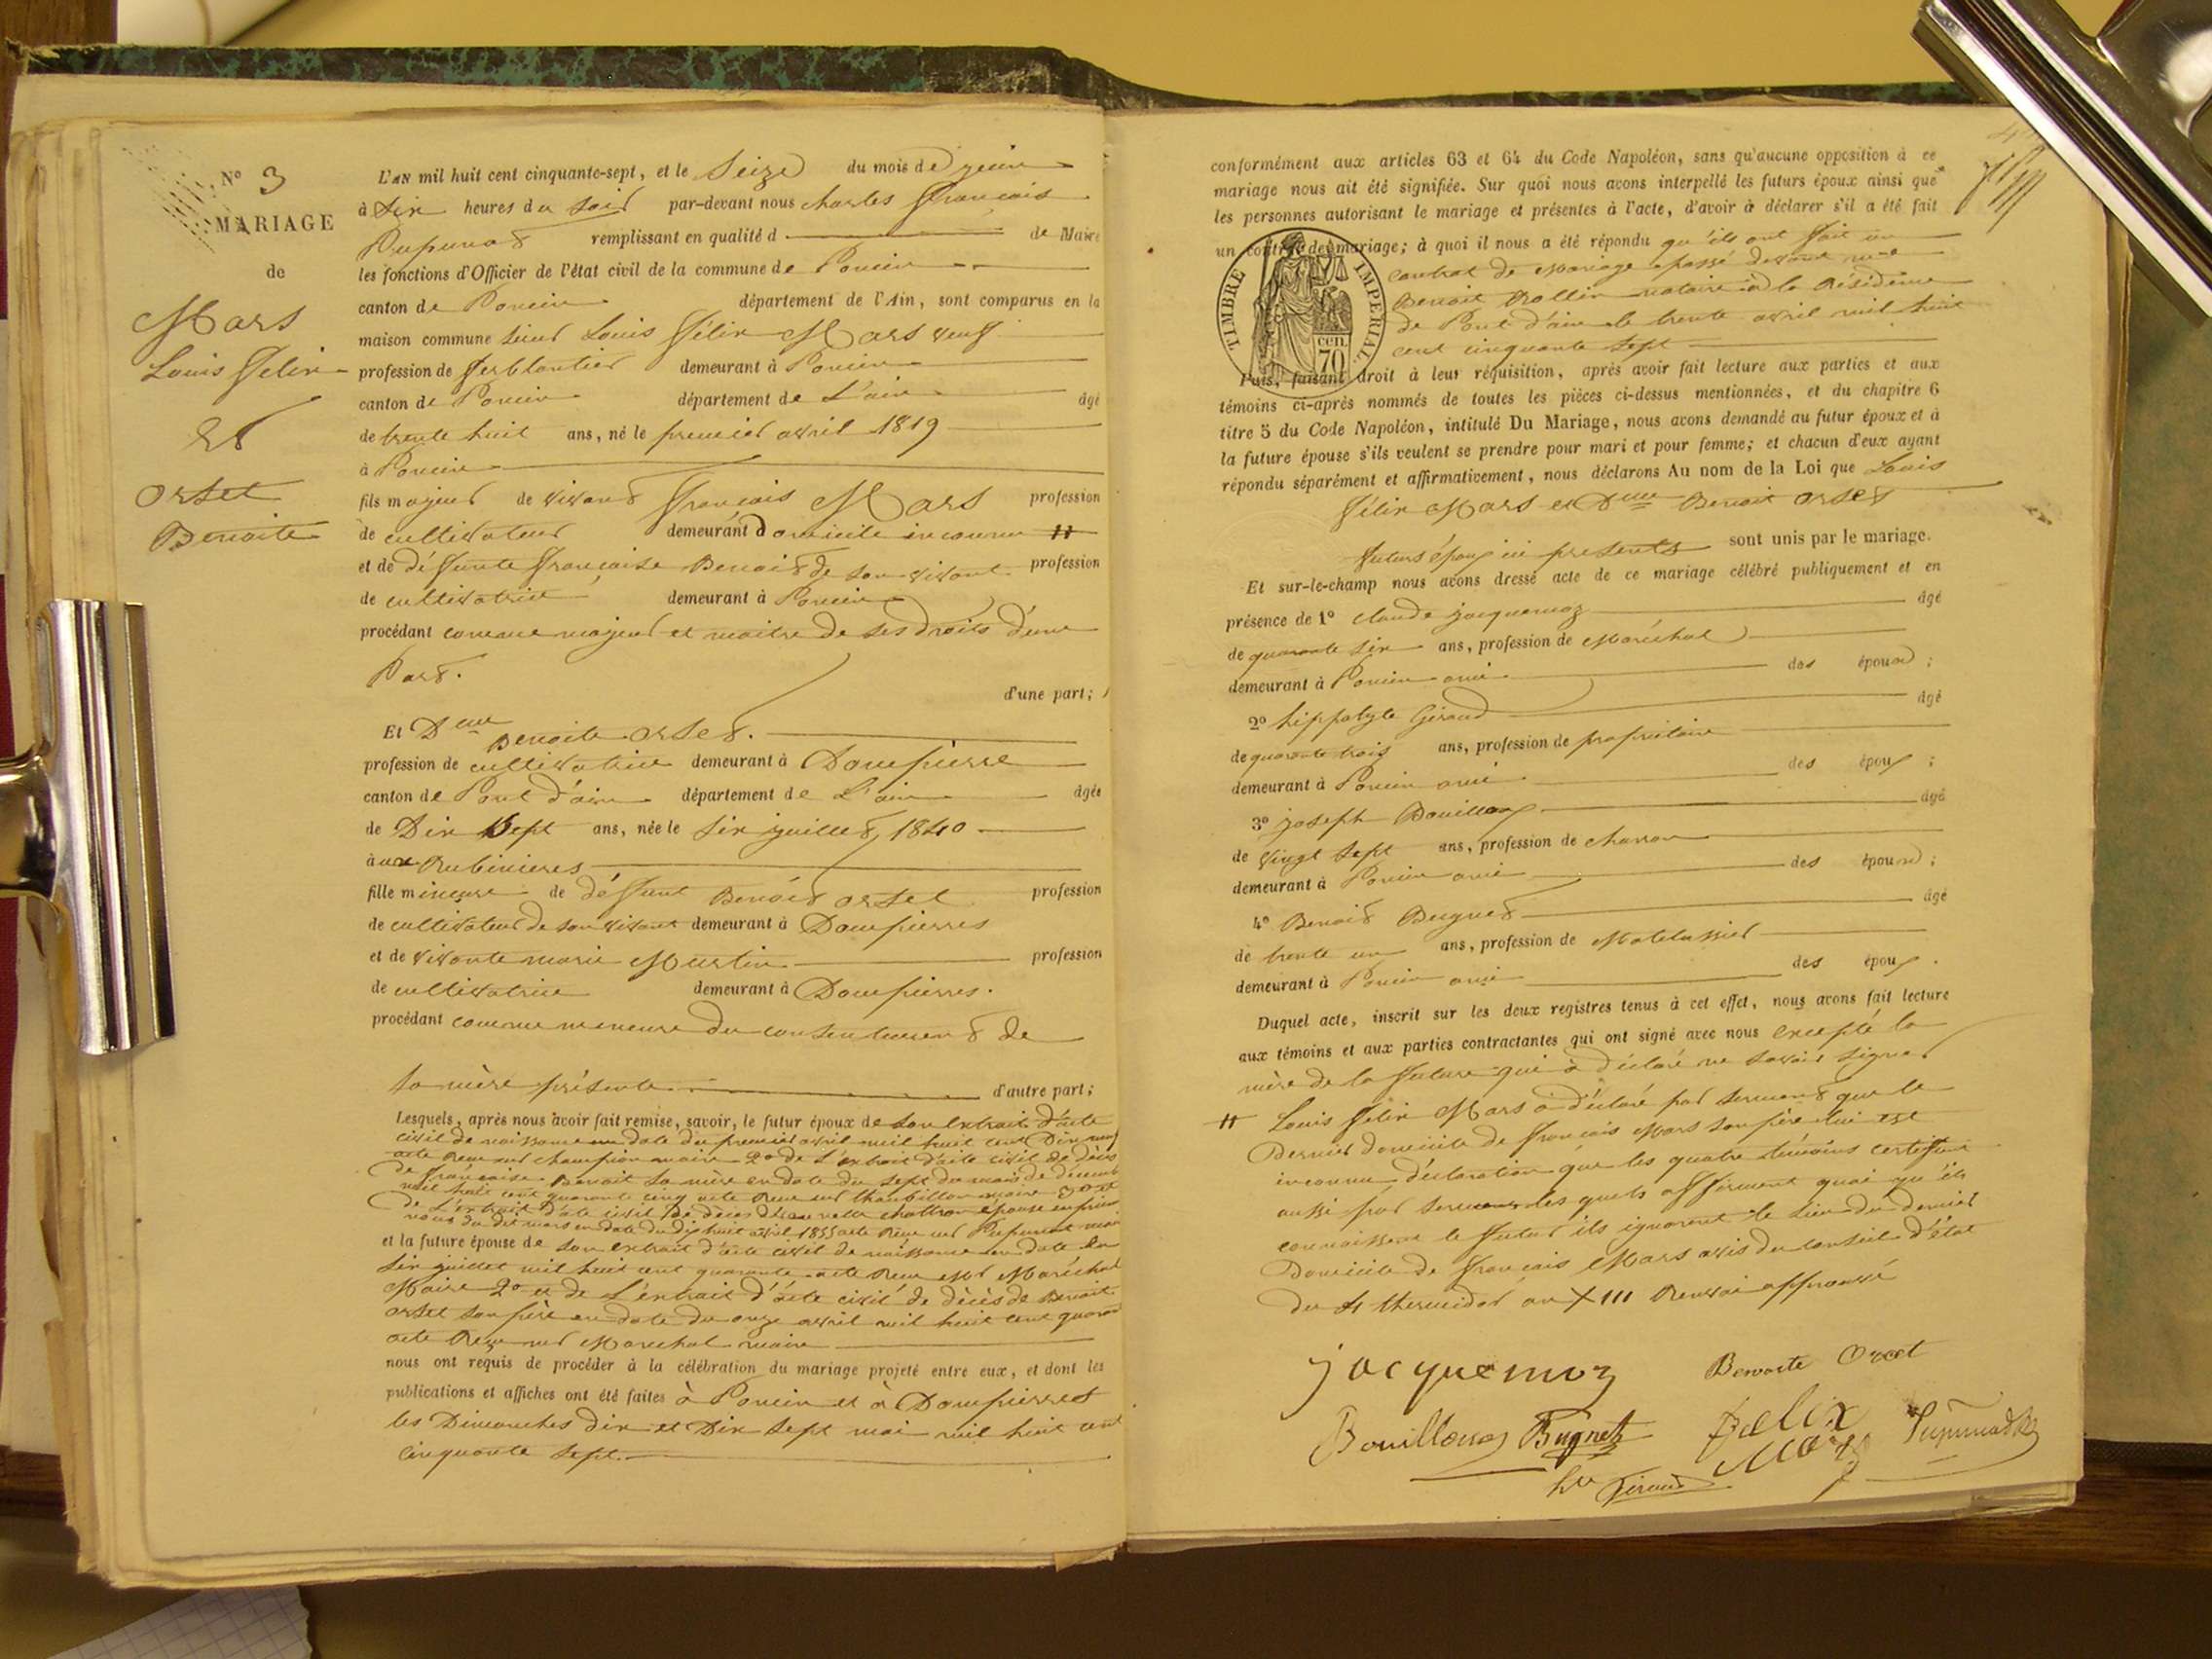 N° 3
MARIAGE
de
Mars
Louis Félix
Et
orset
Benoite
L'AN mil huit cent cinquante-sept, et le Seize du mois de juin
à Six heures du Soir par-devant nous charles François
Pupunat remplissant en qualité d de Maire
les fonctions d'Officier de l'état civil de la commune de Poncin
canton de Poncin département de l'Ain, sont comparus en la
maison commune sieur Louis Félix Mars veuf
profession de ferblantier demeurant à Poncin
canton de Poncin département de L'ain âgé
de trente huit ans, né le premier avril 1819
à Poncin
fils majeur de vivant François Mars profession
de cultivateur demeurant domicile inconnu #
et de défunte Françoise Benoit de son vivant profession
de cultivatrice demeurant à Poncin
procédant comme majeur et maitre de ses droits d'une
Part.
d'une part;
Et Dme Benoite orset.
profession de cultivatrice demeurant à Dompierre
canton de Pont d'ain département de L'ain âgée
de Dix Sept ans, née le six juillet 1840
à aux Rubinieres
fille mineure de défunt Benoit orset profession
de cultivateur de son vivant demeurant à Dompierres
et de vivante marie Martin profession
de cultivatrice demeurant à Dompierres.
procédant comme mineure du consentement de
sa mère présente d'autre part;
Lesquels, après nous avoir fait remise, savoir, le futur époux de son extrait d'acte
civil de naissance en date du premier avril mil huit cent Dix neuf
acte Reçu mr champion maire 2° de L'extrait d'acte civil de décès
de Françoise Benoit sa mère en date du sept du mois de décemb
mil huit cent quarante cinq acte Reçu mr maire 3° et
de L'extrait d'acte civil de décès épouse en
du dit mars en date du dix huit avril 1855 acte Reçu mr Pupunat mair
et la future épouse de son extrait d'acte civil de naissance en date du
six juillet mil huit cent quarante acte Reçu Mr Maréchal
Maire 2° et de L'extrait d'acte civil de décès de Benoit
orset son père en date du onze avril mil huit cent quaran
acte Reçu mr Marechal maire
nous ont requis de procéder à la célébration du mariage projeté entre eux, et dont les
publications et affiches ont été faites à Poncin et à Dompierres
les Dimanches dix et Dix sept mai mil huit cent
cinquante sept.
conformément aux articles 63 et 64 du Code Napoléon, sans qu'aucune opposition à ce
mariage nous ait été signifiée. Sur quoi nous avons interpellé les futurs époux ainsi que
les personnes autorisant le mariage et présentes à l'acte, d'avoir à déclarer s'il a été fait
un contrat de mariage; à quoi il nous a été répondu qu'ils ont fait un
contrat de mariage passé devant me
Benoit Rollin notaire à la Résidence
de Pont d'ain le trente avril mil huit
cent cinquante sept
TIMBRE IMPÉRIAL
cen.
70
Puis, faisant droit à leur réquisition, après avoir fait lecture aux parties et aux
témoins ci-après nommés de toutes les pièces ci-dessus mentionnées, et du chapitre 6
titre 5 du Code Napoléon, intitulé Du Mariage, nous avons demandé au futur époux et à
la future épouse s'ils veulent se prendre pour mari et pour femme; et chacun d'eux ayant
répondu séparément et affirmativement, nous déclarons Au nom de la Loi que Louis
Félix Mars et Dme Benoit orset
futurs époux ici présents sont unis par le mariage.
Et sur-le-champ nous avons dressé acte de ce mariage célébré publiquement et en
présence de 1° claude jacquemoz âgé
de quarante six ans, profession de Maréchal
demeurant à Poncin ami des époux ;
2° hippolyte Giraud âgé
de quarante trois ans, profession de propriétaire
demeurant à Poncin ami des époux ;
3° joseph Bouilloux âgé
de vingt sept ans, profession de charron
demeurant à Poncin ami des époux ;
4° Benoit Bugnet âgé
de trente un ans, profession de Matelassier
demeurant à Poncin ami des époux .
Duquel acte, inscrit sur les deux registres tenus à cet effet, nous avons fait lecture
aux témoins et aux parties contractantes qui ont signé avec nous excepté la
mère de la future qui à déclaré ne savoir signer
# Louis Félix Mars à déclaré par serment que le
Dernier domicile de françois Mars son père lui est
inconnu déclaration que les quatre témoins certifient
aussi par serment les quels affirment quoi qu'ils
connaissent le futur ils ignorent le lieu du dernier
Domicile de françois Mars avis du conseil d'état
du 4 thermidor an XIII Renvoi approuvé
jacquemoz Benoite Orcet
Bouilloux Bugnet Felix Mars Pupunat
hte Giraud